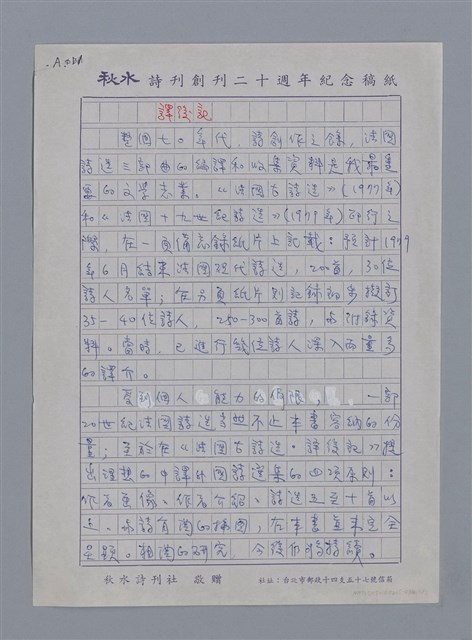 A.001
秋水 詩刊創刊二十週年紀念稿紙
譯後記
整個七〇年代,詩創作之餘,法國
詩選三部曲的編譯和收集資料是我最重
要的文學志業。《法國古詩選》(1977年)
和《法國十九世紀詩選》(1979年)印行之
際,在一頁備忘錄紙片上記載:預計1979
年6月結束法國現代詩選,200首,30位
詩人名單;在另頁紙片則記錄初步擬訂
35-40位詩人,250-300首詩,為附錄資
料。當時,已進行幾位詩人深入而量多
的譯介。
受到個人能力的侷限,一部
20世紀法國詩選當然不止本書容納的份
量;至於在《法國古詩選·譯後記》提
出理想的中譯外國詩選集的四項原則:
作者畫像、作者介紹、詩選五至十首以
上、每詩有關的插圖,在本書並未完全
呈顯。相關的研究,今後仍將持續。
秋水詩刊社 敬贈 社址:台北市郵政十四支五十七號信箱